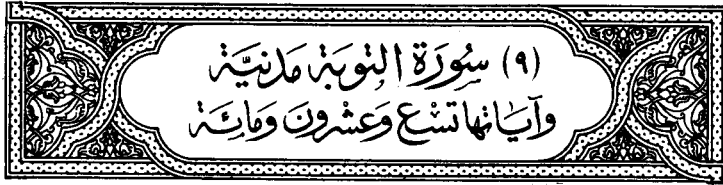 (٩) سُورَة التوبَة مَدنيَّة
وآيَاتها تسْع وَعشرونَ وَمائة